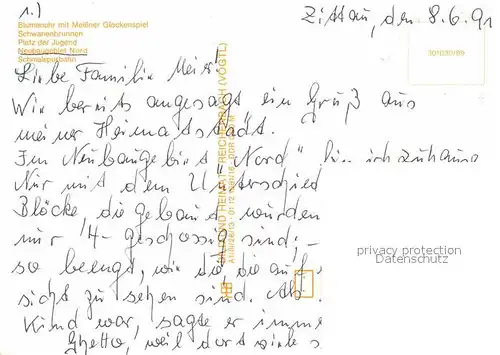 1.)
Blumenuhr mit Meißner Glockenspiel
Schwanenbrunnen
Platz der Jugend
Neubaugebiet Nord
Schmalspurbahn
Zittau, den 8.6.91
301030/89
Liebe Familie Meier!
Wie bereits angesagt ein Gruß aus
meiner Heimatstadt.
Im Neubaugebiet "Nord" bin ich zuhause
Nur mit dem Unterschied
Blöcke, die gebaut wurden
nur 4-geschossig sind, –
so beengt, wie die, die auf
sicht zu sehen sind. Als
Kind war, sagte er imme
Ghetto, weil dort viele s
BILD UND HEIMAT REICHENBACH (VOGTL)
privacy protection
Datenschutz